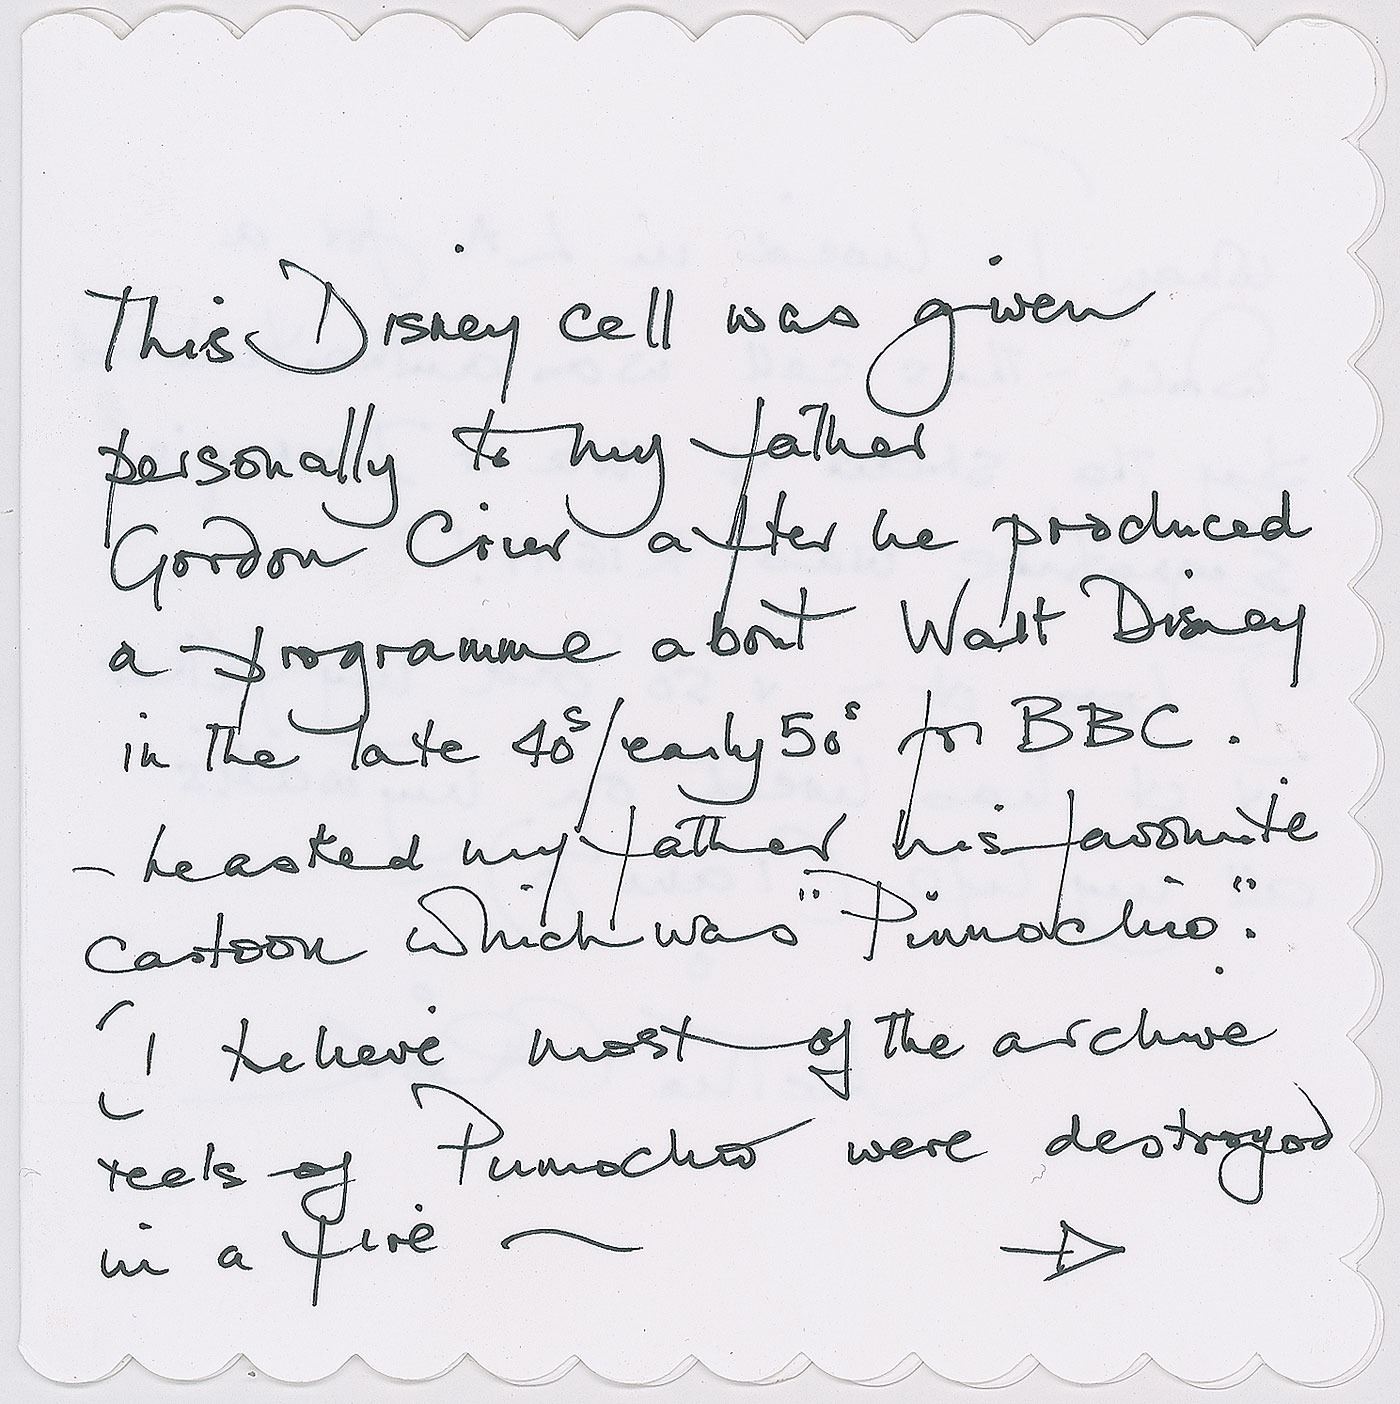 This Disney cell was given
personally to my father
Gordon Crier after he produced
a programme about Walt Disney
in the late 40s/early 50s for BBC.
- he asked my father his favourite
cartoon which was "Pinnochio".
( I believe most of the archive
reels of Pinnochio were destroyed
in a fire ~ →